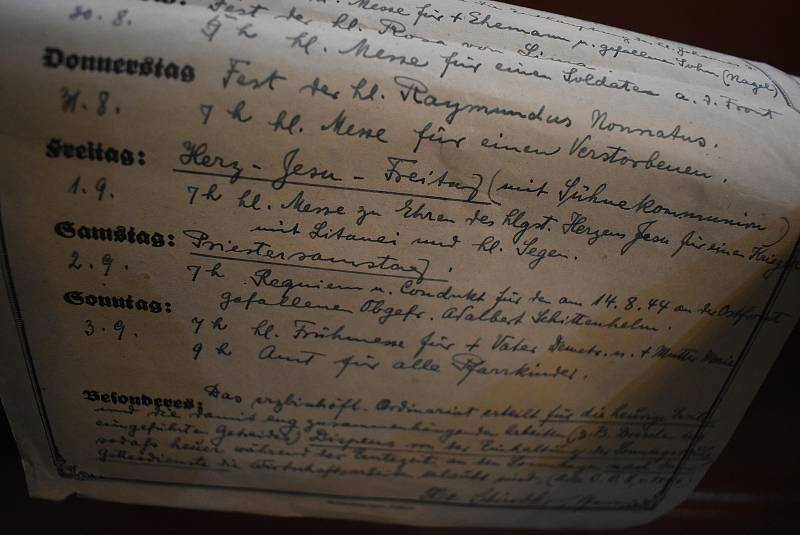 hl. Messe für + Ehemann u. gefallenen Sohn (Nagel)
30. 8. Fest der hl. Rosa von Lima
7 h hl. Messe für einen Soldaten a. d. Front
Donnerstag Fest der hl. Raymundus Nonnatus.
31. 8. 7 h hl. Messe für einen Verstorbenen.
Freitag: Herz-Jesu-Freitag (mit Sühnekommunion)
1. 9. 7 h hl. Messe zu Ehren des hlgst. Herzens Jesu für einen
mit Litanei und hl. Segen.
Samstag: Priestersamstag.
2. 9. 7 h Requiem u. Condukt für den am 14. 8. 44 an der Ostfront
gefallenen Obgefr. Adalbert Schittenhelm.
Sonntag:
3. 9. 7 h hl. Frühmesse für + Vater Demetr. u. + Mutter Maria
9 h Amt für alle Pfarrkinder.
Besonderes: Das erzbischöfl. Ordinariat erteilt für die heurige Ernte
und die damit eng zusammenhängenden Arbeiten (z. B. Dresch des
eingeführten Getreides) Dispens von der Einhaltung der
sodaß heuer während der Erntezeit an den Sonntagen nach dem
Gottesdienste die erlaubt sind.